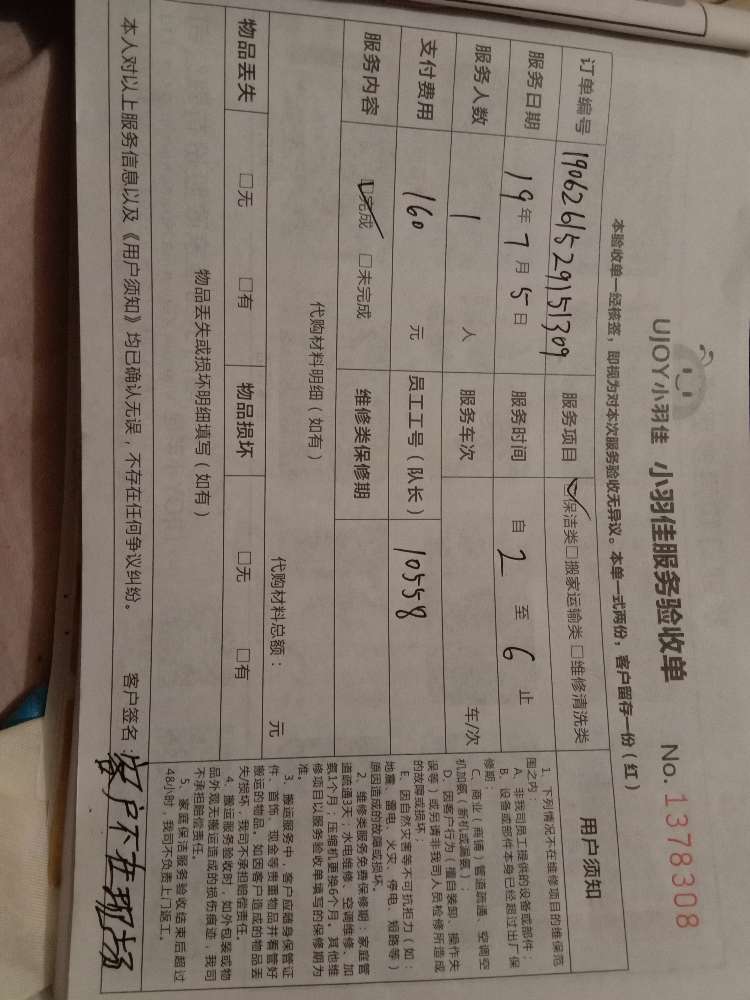 UJOY小羽佳 小羽佳服务验收单 No.1378308
本验收单一经核签，即视为对本次服务验收无异议。本单一式两份，客户留存一份（红）
订单编号 1906261529151309 服务项目 ☑保洁类□搬家运输类□维修清洗类
服务日期 19年7月5日 服务时间 自2至6止
服务人数 1人 服务车次 车/次
支付费用 160元 员工工号（队长） 10558
服务内容 ☑完成 □未完成 维修类保修期
代购材料明细（如有） 代购材料总额： 元
物品丢失 □无 □有 物品损坏 □无 □有
物品丢失或损坏明细填写（如有）
本人对以上服务信息以及《用户须知》均已确认无误，不存在任何争议纠纷。 客户签名：客户不在现场
用户须知
1、下列情况不在维修项目的维保范
围之内：
A、非我司员工提供的设备或部件；
B、设备或部件本身已经超过出厂保
修期；
C、商业（商铺）管道疏通、空调空
机加氨（新机或漏氨）；
D、因客户行为（擅自装卸、操作失
误等）或另请非我司人员检修所造成
的故障或损坏；
E、因自然灾害等不可抗拒力（如：
地震、雷电、火灾、停电、短路等）
原因造成的故障或损坏。
2、维修类服务免费保修期：家庭管
道疏通3天；水电维修、空调维修、加
氨1个月；压缩机更换6个月。其他维
修项目以服务验收单填写的保修期为
准。
3、搬运服务中，客户应随身保管证
件、首饰、现金等贵重物品并看管好
搬运的物品，如因客户造成的物品丢
失/损坏，我司不承担赔偿责任。
4、搬运服务验收时，如外包装或物
品外观无搬运造成的损伤痕迹，我司
不承担赔偿责任。
5、家庭保洁服务验收结束后超过
48小时，我司不负责上门返工。